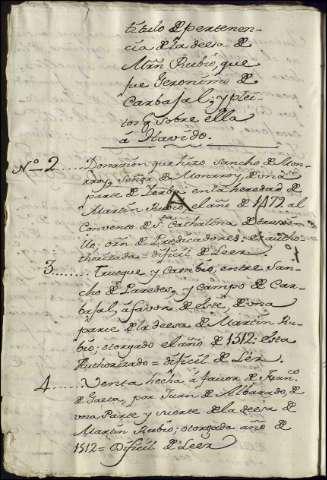 título de pertenen-
cia de la deesa de
Mrn Rubio, que
fue Geronimo de
Carbajal; y plei-
tos que sobre ella
a Havido.
Nº 2..... Donacion que hizo Sancho de Mon-
roy, Señor de Monrroy, de una
parte de Yerba en la heredad de
Martin Rubio, el año de 1472 al
Convento de Sta Cathalina de
orn de Predicadores;
thorizada = dificil de Leer.
3....... Trueque y Cambio, entre San-
cho de Paredes, y campo de Car-
bajal, a favor de este de una
parte de la deesa de Martin Ru-
bio, otorgado el año de 1512. esta
Authorizado = dificil de Leer.
4..... Venta hecha a favor de Franco
de Gaeta, por Juan de Albarado, de
una Parte y suerte de la deesa de
Martin Rubio; otorgada año de
1512 = Dificil de Leer